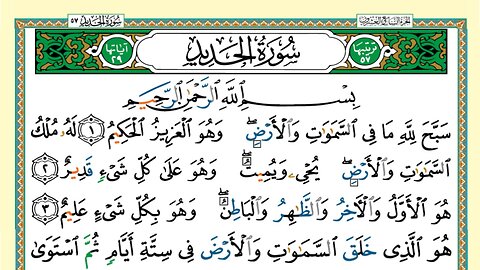 سُوْرَةُ الْحَدِيْد ٥٧
الجزء السابع والعشرون
اٰيَاتُهَا ٢٩
سُوْرَةُ الْحَدِيْد
تَرْتِيْبُهَا ٥٧
بِسْمِ ٱللَّهِ ٱلرَّحْمَٰنِ ٱلرَّحِيمِ
سَبَّحَ لِلَّهِ مَا فِى ٱلسَّمَٰوَٰتِ وَٱلْأَرْضِ ۖ وَهُوَ ٱلْعَزِيزُ ٱلْحَكِيمُ ١ لَهُۥ مُلْكُ
ٱلسَّمَٰوَٰتِ وَٱلْأَرْضِ ۖ يُحْىِۦ وَيُمِيتُ ۖ وَهُوَ عَلَىٰ كُلِّ شَىْءٍ قَدِيرٌ ٢
هُوَ ٱلْأَوَّلُ وَٱلْءَاخِرُ وَٱلظَّٰهِرُ وَٱلْبَاطِنُ ۖ وَهُوَ بِكُلِّ شَىْءٍ عَلِيمٌ ٣
هُوَ ٱلَّذِى خَلَقَ ٱلسَّمَٰوَٰتِ وَٱلْأَرْضَ فِى سِتَّةِ أَيَّامٍ ثُمَّ ٱسْتَوَىٰ